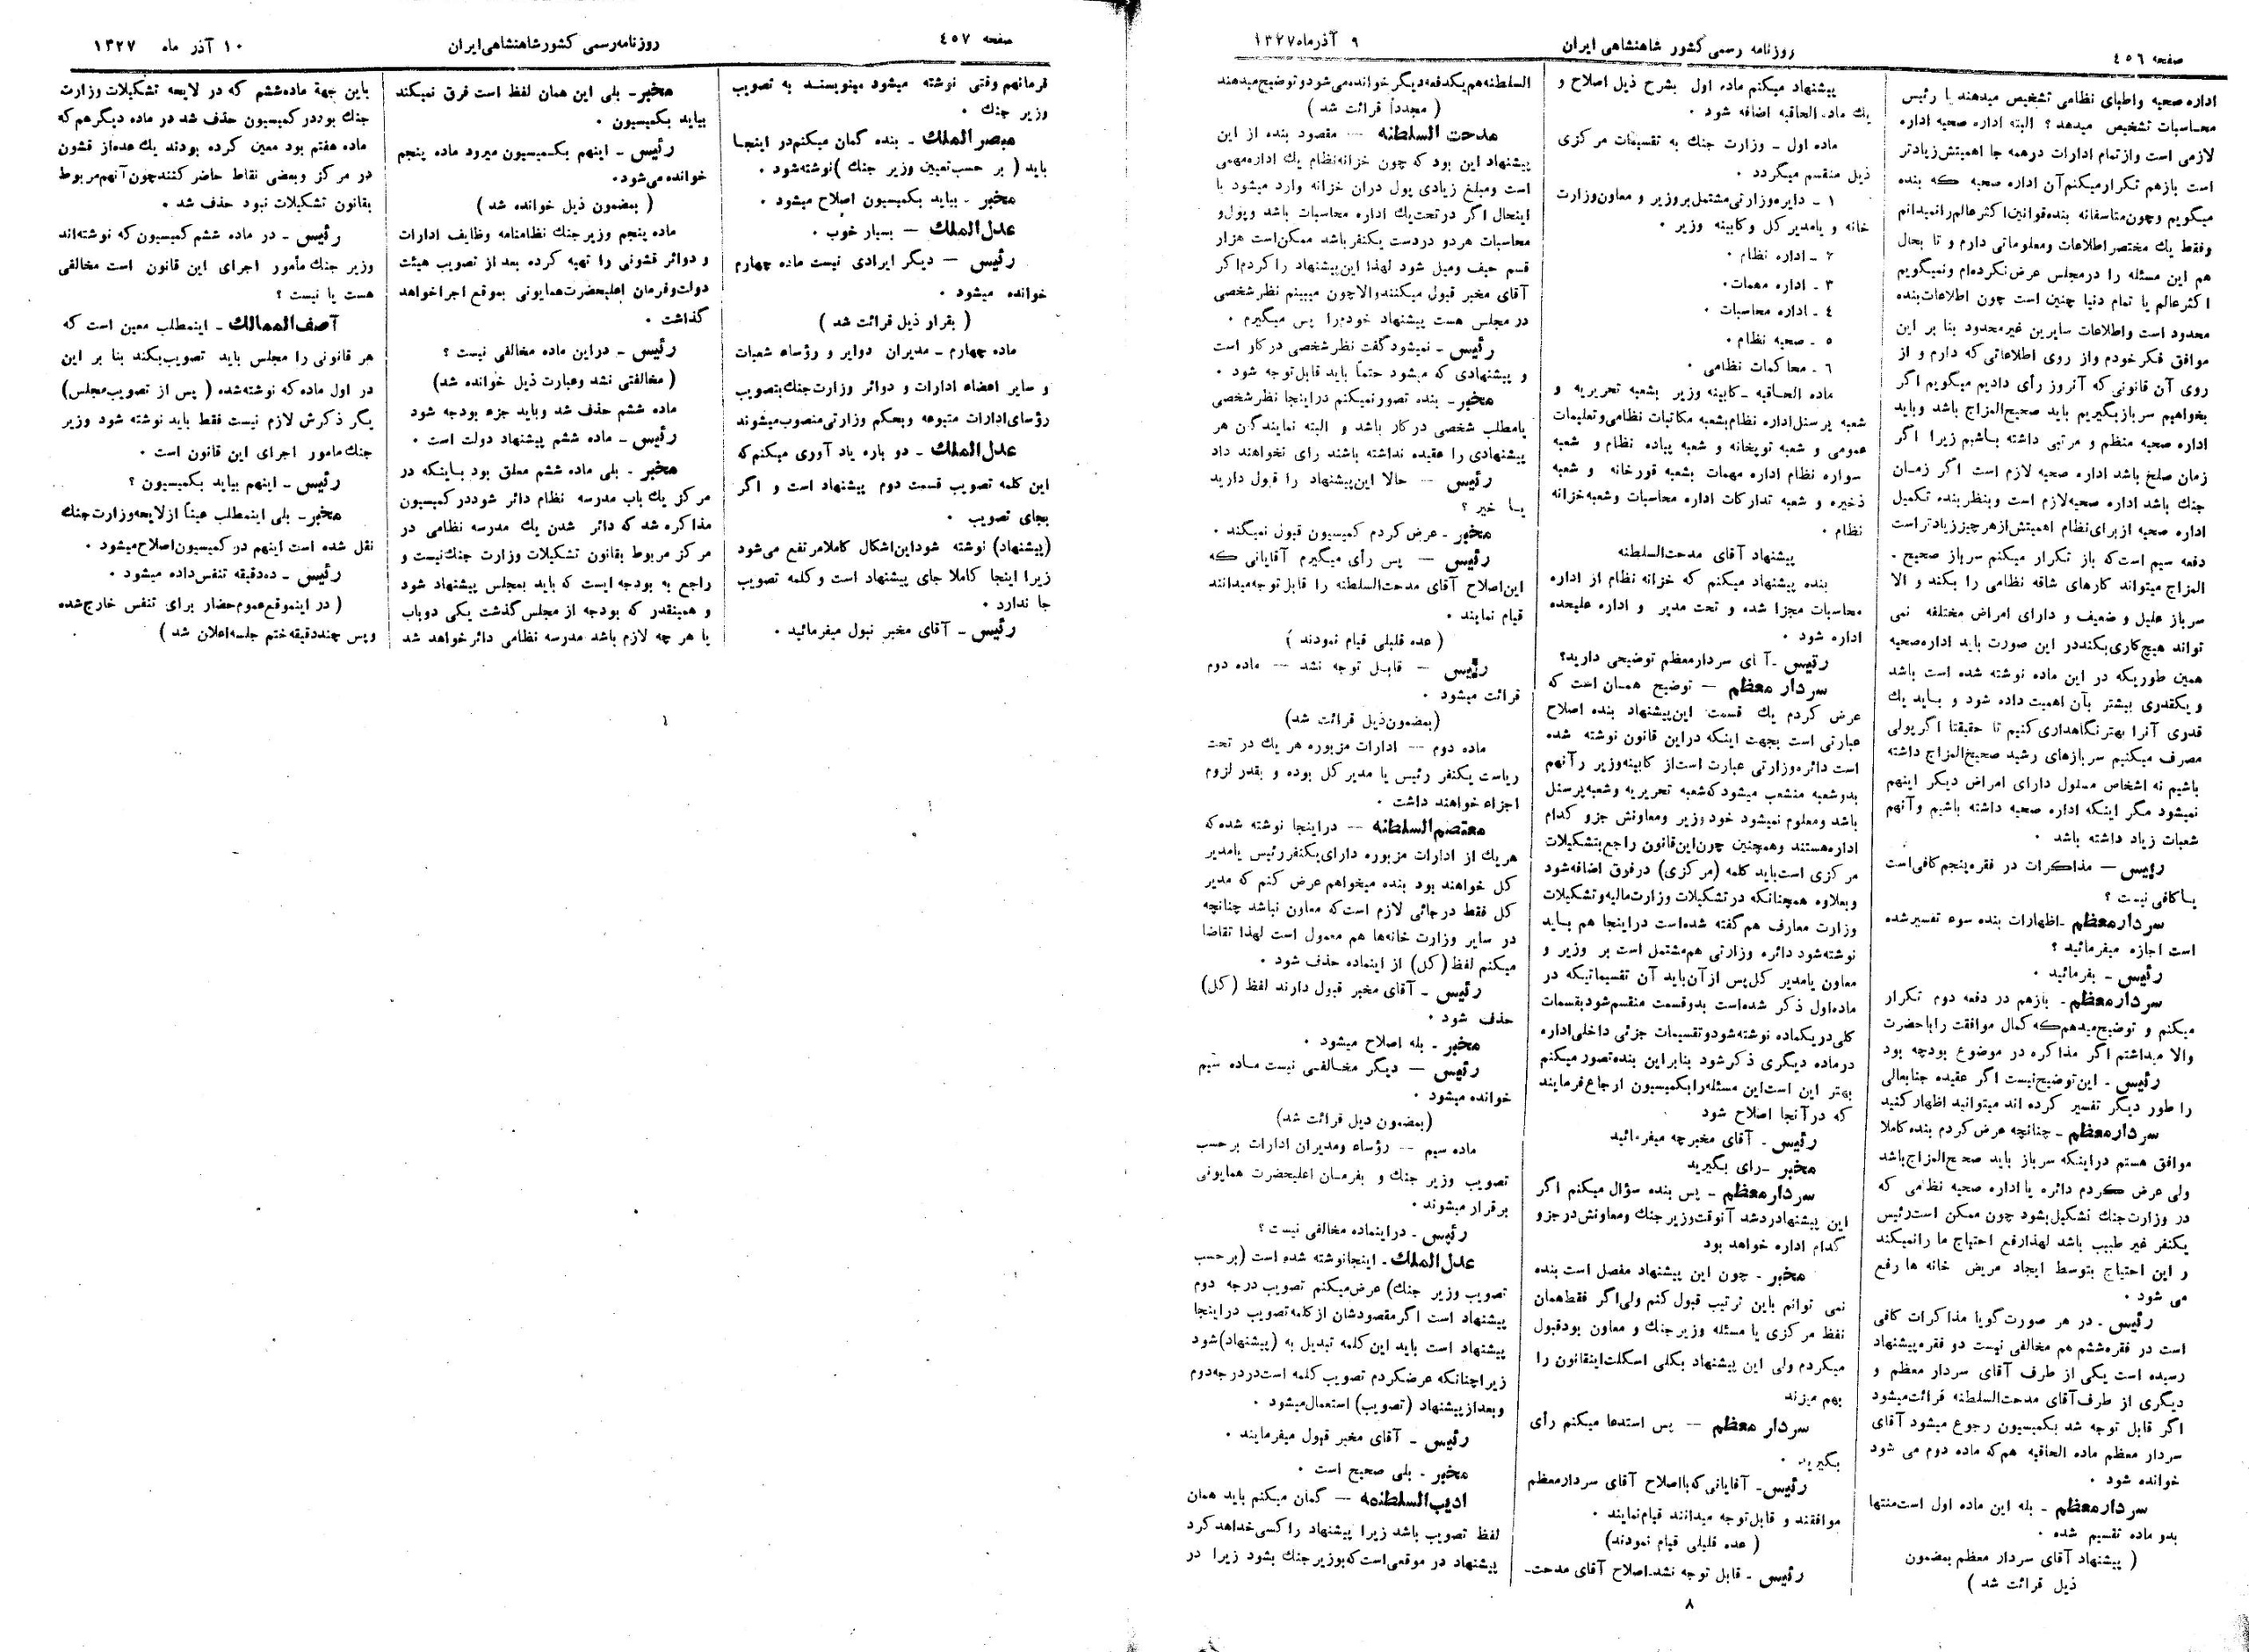 صفحه ٤٥٦
روزنامه رسمی کشور شاهنشاهی ایران
۹ آذرماه ۱۳۲۷
اداره صحیه واطبای نظامی تشخیص میدهند یا رئیس
محاسبات تشخیص میدهد؟ البته اداره صحیه اداره
لازمی است وازتمام ادارات درهمه جا اهمیتش زیادتر
است بازهم تکرارمیکنم آن اداره صحیه که بنده
میگویم وچون متاسفانه بنده قوانین اکثرعالم رانمیدانم
وفقط یك مختصر اطلاعات ومعلوماتی دارم و تا بحال
هم این مسئله را درمجلس عرض نکرده‌ام ونمیگویم
اکثرعالم یا تمام دنیا چنین است چون اطلاعات بنده
محدود است واطلاعات سایرین غیرمحدود بنا بر این
موافق فکرخودم واز روی اطلاعاتی که دارم و از
روی آن قانونی که آنروز رأی دادیم میگویم اگر
بخواهیم سرباز بگیریم باید صحیح‌المزاج باشد وباید
اداره صحیه منظم و مرتبی داشته باشیم زیرا اگر
زمان صلح باشد اداره صحیه لازم است اگر زمان
جنك باشد اداره صحیه لازم است وبنظر بنده تکمیل
اداره صحیه ازبرای نظام اهمیتش ازهرچیز زیادتر است
دفعه سیم است که باز تکرار میکنم سرباز صحیح ـ
المزاج میتواند کارهای شاقه نظامی را بکند و الا
سرباز علیل و ضعیف و دارای امراض مختلفه نمی
تواند هیچ کاری بکند در این صورت باید اداره صحیه
همین طوریکه در این ماده نوشته شده است باشد
ویکقدری بیشتر بآن اهمیت داده شود و باید یك
قدری آنرا بهتر نگاهداری کنیم تا حقیقتا اگر پولی
مصرف میکنیم سربازهای رشید صحیح‌المزاج داشته
باشیم نه اشخاص مسلول دارای امراض دیگر اینهم
نمیشود مگر اینکه اداره صحیه داشته باشیم وآنهم
شعبات زیاد داشته باشد .
رئیس — مذاکرات در فقره پنجم کافی است
یا کافی نیست ؟
سردارمعظم ـ اظهارات بنده سوء تفسیر شده
است اجازه میفرمائید ؟
رئیس ـ بفرمائید .
سردارمعظم ـ بازهم در دفعه دوم تکرار
میکنم و توضیح میدهم که کمال موافقت را با حضرت
والا میداشتم اگر مذاکره در موضوع بودجه بود
رئیس ـ این توضیح نیست اگر عقیده جنابعالی
را طور دیگر تفسیر کرده اند میتوانید اظهار کنید
سردارمعظم ـ چنانچه عرض کردم بنده کاملا
موافق هستم دراینکه سرباز باید صحیح‌المزاج باشد
ولی عرض کردم دائره یا اداره صحیه نظامی که
در وزارت جنك تشکیل بشود چون ممکن است رئیس
یکنفر غیر طبیب باشد لهذا رفع احتیاج ما را نمیکند
و این احتیاج بتوسط ایجاد مریض خانه ها رفع
می شود .
رئیس ـ در هر صورت گویا مذاکرات کافی
است در فقره ششم هم مخالفی نیست دو فقره پیشنهاد
رسیده است یکی از طرف آقای سردار معظم و
دیگری از طرف آقای مدحت‌السلطنه قرائت میشود
اگر قابل توجه شد بکمیسیون رجوع میشود آقای
سردار معظم ماده الحاقیه هم که ماده دوم می شود
خوانده شود .
سردارمعظم ـ بله این ماده اول است منتها
بدو ماده تقسیم شده .
( پیشنهاد آقای سردار معظم بمضمون
ذیل قرائت شد )
پیشنهاد میکنم ماده اول بشرح ذیل اصلاح و
یك ماده الحاقیه اضافه شود .
ماده اول ـ وزارت جنك به تقسیمات مرکزی
ذیل منقسم میگردد .
۱ ـ دایره وزارتی مشتمل بر وزیر و معاون وزارت
خانه و یا مدیر کل و کابینه وزیر .
۲ ـ اداره نظام .
۳ ـ اداره مهمات .
٤ ـ اداره محاسبات .
٥ ـ صحیه نظام .
٦ ـ محاکمات نظامی .
ماده الحاقیه ـ کابینه وزیر بشعبه تحریریه و
شعبه پرسنل اداره نظام بشعبه مکاتبات نظامی و تعلیمات
عمومی و شعبه توپخانه و شعبه پیاده نظام و شعبه
سواره نظام اداره مهمات بشعبه قورخانه و شعبه
ذخیره و شعبه تدارکات اداره محاسبات وشعبه خزانه
نظام .
پیشنهاد آقای مدحت‌السلطنه
بنده پیشنهاد میکنم که خزانه نظام از اداره
محاسبات مجزا شده و تحت مدیر و اداره علیحده
اداره شود .
رئیس ـ آقای سردارمعظم توضیحی دارید؟
سردار معظم — توضیح همان است که
عرض کردم یك قسمت این پیشنهاد بنده اصلاح
عبارتی است بجهت اینکه دراین قانون نوشته شده
است دائره وزارتی عبارت است از کابینه وزیر و آنهم
بدو شعبه منشعب میشود که شعبه تحریریه وشعبه پرسنل
باشد ومعلوم نمیشود خود وزیر ومعاونش جزو کدام
اداره هستند وهمچنین چون این قانون راجع بتشکیلات
مرکزی است باید کلمه (مرکزی) درفوق اضافه شود
وبعلاوه همچنانکه در تشکیلات وزارت مالیه و تشکیلات
وزارت معارف هم گفته شده است دراینجا هم باید
نوشته شود دائره وزارتی هم مشتمل است بر وزیر و
معاون یا مدیر کل پس از آن باید آن تقسیماتیکه در
ماده اول ذکر شده است بدو قسمت منقسم شود بقسمات
کلی در یکماده نوشته شود و تقسیمات جزئی داخلی اداره
در ماده دیگری ذکر شود بنابراین بنده تصور میکنم
بهتر این است این مسئله را بکمیسیون ارجاع فرمایند
که در آنجا اصلاح شود
رئیس ـ آقای مخبر چه میفرمائید
مخبر ـ رای بگیرید
سردارمعظم ـ پس بنده سؤال میکنم اگر
این پیشنهاد رد شد آنوقت وزیر جنك ومعاونش در جزو
کدام اداره خواهد بود
مخبر ـ چون این پیشنهاد مفصل است بنده
نمی توانم باین ترتیب قبول کنم ولی اگر فقط همان
لفظ مرکزی یا مسئله وزیر جنك و معاون بود قبول
میکردم ولی این پیشنهاد بکلی اسکلت اینقانون را
بهم میزند
سردار معظم — پس استدعا میکنم رأی
بگیرید .
رئیس ـ آقایانی که با اصلاح آقای سردارمعظم
موافقند و قابل توجه میدانند قیام نمایند .
( عده قلیلی قیام نمودند)
رئیس ـ قابل توجه نشد. اصلاح آقای مدحت‌ـ
۸
السلطنه هم یکدفعه دیگر خوانده می شود و توضیح میدهند
( مجدداً قرائت شد )
مدحت السلطنه — مقصود بنده از این
پیشنهاد این بود که چون خزانه نظام یك اداره مهمی
است ومبلغ زیادی پول دران خزانه وارد میشود با
اینحال اگر در تحت یك اداره محاسبات باشد وپول و
محاسبات هردو دردست یکنفر باشد ممکن است هزار
قسم حیف ومیل شود لهذا این پیشنهاد را کردم اگر
آقای مخبر قبول میکنند والا چون میبینم نظر شخصی
در مجلس هست پیشنهاد خودم را پس میگیرم .
رئیس ـ نمیشود گفت نظر شخصی در کار است
و پیشنهادی که میشود حتماً باید قابل توجه شود .
مخبر ـ بنده تصور نمیکنم دراینجا نظر شخصی
یا مطلب شخصی در کار باشد و البته نمایندگان هر
پیشنهادی را عقیده نداشته باشند رای نخواهند داد
رئیس — حالا این پیشنهاد را قبول دارید
یا خیر ؟
مخبر ـ عرض کردم کمیسیون قبول نمیکند .
رئیس — پس رأی میگیرم آقایانی که
این اصلاح آقای مدحت السلطنه را قابل توجه میدانند
قیام نمایند .
( عده قلیلی قیام نمودند )
رئیس — قابل توجه نشد — ماده دوم
قرائت میشود .
(بمضمون ذیل قرائت شد)
ماده دوم — ادارات مزبوره هر یك در تحت
ریاست یکنفر رئیس یا مدیر کل بوده و بقدر لزوم
اجزاء خواهند داشت .
معتصم السلطنه — دراینجا نوشته شده که
هر یك از ادارات مزبوره دارای یکنفر رئیس یا مدیر
کل خواهند بود بنده میخواهم عرض کنم که مدیر
کل فقط در جائی لازم است که معاون نباشد چنانچه
در سایر وزارت خانه‌ها هم معمول است لهذا تقاضا
میکنم لفظ (کل) از اینماده حذف شود .
رئیس ـ آقای مخبر قبول دارند لفظ (کل)
حذف شود .
مخبر ـ بله اصلاح میشود .
رئیس — دیگر مخالفی نیست ماده سیم
خوانده میشود .
(بمضمون ذیل قرائت شد)
ماده سیم — رؤساء ومدیران ادارات بر حسب
تصویب وزیر جنك و بفرمان اعلیحضرت همایونی
برقرار میشوند .
رئیس ـ دراینماده مخالفی نیست ؟
عدل الملك ـ اینجا نوشته شده است (برحسب
تصویب وزیر جنك) عرض میکنم تصویب درجه دوم
پیشنهاد است اگر مقصودشان از کلمه تصویب دراینجا
پیشنهاد است باید این کلمه تبدیل به (پیشنهاد) شود
زیرا چنانکه عرض کردم تصویب کلمه است در درجه دوم
وبعد از پیشنهاد (تصویب) استعمال میشود .
رئیس ـ آقای مخبر قبول میفرمایند .
مخبر ـ بلی صحیح است .
ادیب السلطنه — گمان میکنم باید همان
لفظ تصویب باشد زیرا پیشنهاد را کسی خداهد کرد
پیشنهاد در موقعی است که بوزیر جنك بشود زیرا در
صفحه ٤٥٧
روزنامه رسمی کشور شاهنشاهی ایران
۱۰ آذر ماه ۱۳۲۷
فرمانهم وقتی نوشته میشود مینویسند به تصویب
وزیر جنك .
مبصر الملك ـ بنده گمان میکنم در اینجا
باید ( بر حسب تعیین وزیر جنك ) نوشته شود .
مخبر ـ بیاید بکمیسیون اصلاح میشود .
عدل الملك — بسیار خوب .
رئیس — دیگر ایرادی نیست ماده چهارم
خوانده میشود .
( بقرار ذیل قرائت شد )
ماده چهارم ـ مدیران دوایر و رؤساء شعبات
و سایر اعضاء ادارات و دوائر وزارت جنك بتصویب
رؤسای ادارات متبوعه وبحکم وزارتی منصوب میشوند
عدل الملك ـ دو باره یاد آوری میکنم که
این کلمه تصویب قسمت دوم پیشنهاد است و اگر
بجای تصویب .
(پیشنهاد) نوشته شود این اشکال کاملا مرتفع می شود
زیرا اینجا کاملا جای پیشنهاد است و کلمه تصویب
جا ندارد .
رئیس ـ آقای مخبر قبول میفرمائید .
مخبر ـ بلی این همان لفظ است فرق نمیکند
بیاید بکمیسیون .
رئیس ـ اینهم بکمیسیون میرود ماده پنجم
خوانده می شود .
( بمضمون ذیل خوانده شد )
ماده پنجم وزیر جنك نظامنامه وظایف ادارات
و دوائر قشونی را تهیه کرده بعد از تصویب هیئت
دولت وفرمان اعلیحضرت همایونی بموقع اجرا خواهد
گذاشت .
رئیس ـ دراین ماده مخالفی نیست ؟
( مخالفتی نشد وعبارت ذیل خوانده شد)
ماده ششم حذف شد وباید جزء بودجه شود
رئیس ـ ماده ششم پیشنهاد دولت است .
مخبر ـ بلی ماده ششم معلق بود باینکه در
مرکز یك باب مدرسه نظام دائر شود در کمیسیون
مذاکره شد که دائر شدن یك مدرسه نظامی در
مرکز مربوط بقانون تشکیلات وزارت جنك نیست و
راجع به بودجه ایست که باید بمجلس پیشنهاد شود
و همینقدر که بودجه از مجلس گذشت یکی دو باب
یا هر چه لازم باشد مدرسه نظامی دائر خواهد شد
باین جهة ماده ششم که در لایحه تشکیلات وزارت
جنك بود در کمیسیون حذف شد در ماده دیگر هم که
ماده هفتم بود معین کرده بودند یك عده از قشون
در مرکز وبعضی نقاط حاضر کنند چون آنهم مربوط
بقانون تشکیلات نبود حذف شد .
رئیس ـ در ماده ششم کمیسیون که نوشته‌اند
وزیر جنك مأمور اجرای این قانون است مخالفی
هست یا نیست ؟
آصف الممالك ـ اینمطلب معین است که
هر قانونی را مجلس باید تصویب بکند بنا بر این
در اول ماده که نوشته شده ( پس از تصویب مجلس)
یگر ذکرش لازم نیست فقط باید نوشته شود وزیر
جنك مامور اجرای این قانون است .
رئیس ـ اینهم بیاید بکمیسیون ؟
مخبر ـ بلی اینمطلب عیناً از لایحه وزارت جنك
نقل شده است اینهم در کمیسیون اصلاح میشود .
رئیس ـ ده دقیقه تنفس داده میشود .
( در اینموقع عموم حضار برای تنفس خارج شده
وپس چند دقیقه ختم جلسه اعلان شد )